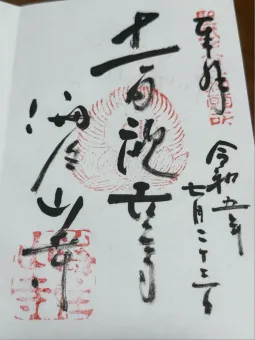 奉拝
令和五年
七月二十三日
十一面観世音
海住山寺